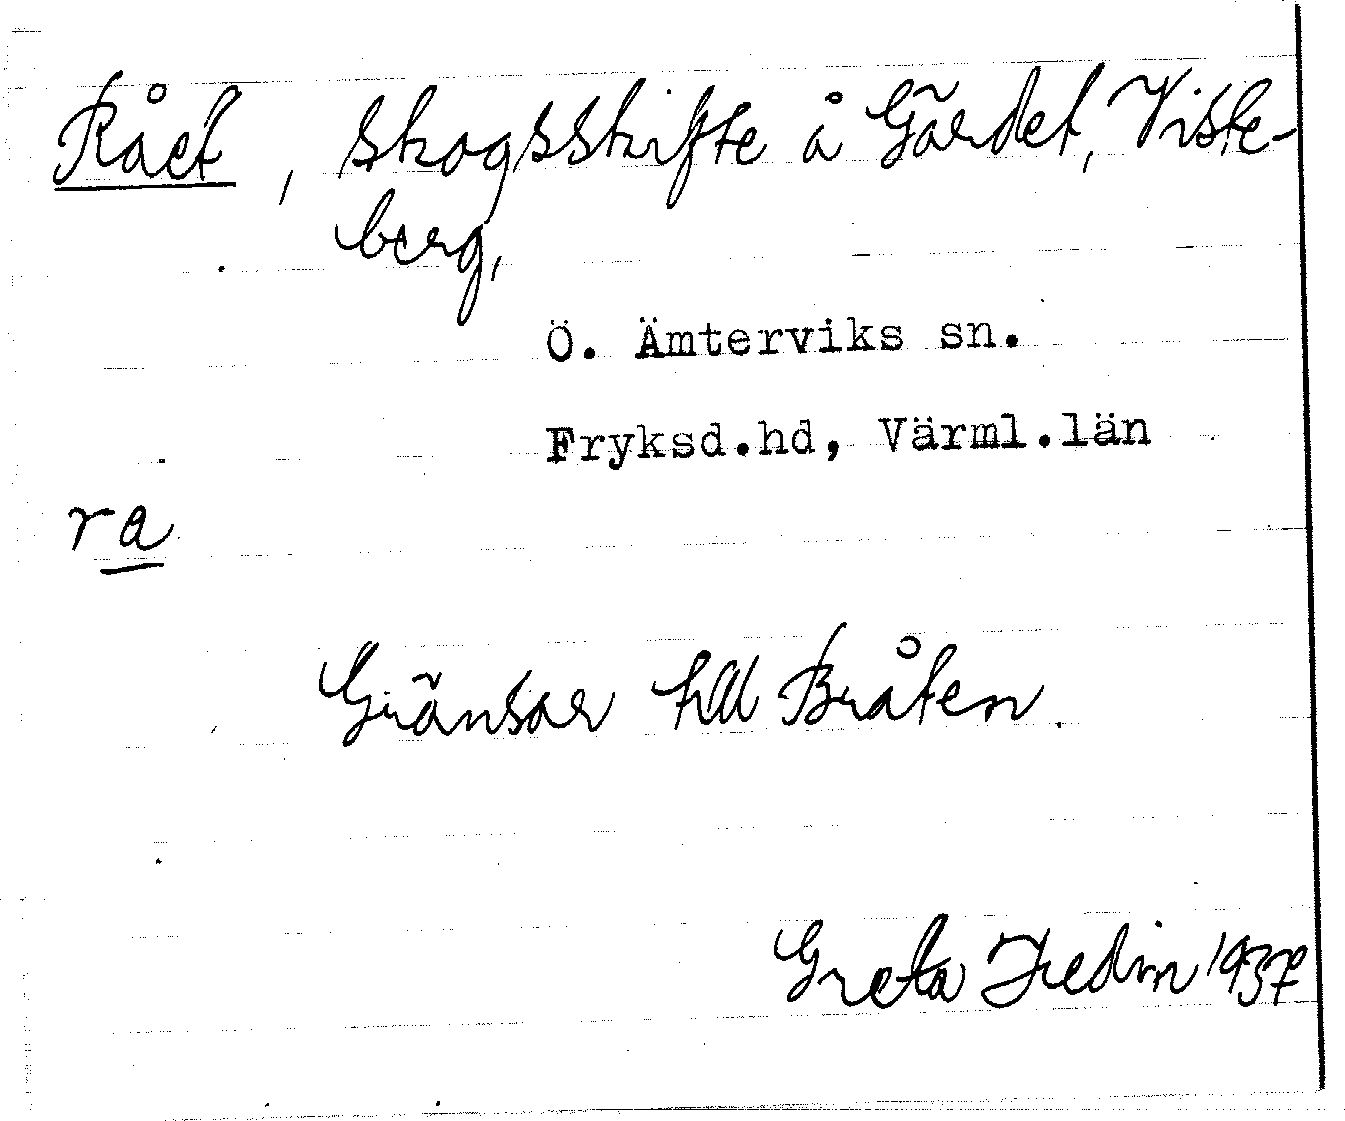 Rået, skogsskifte å Gärdet, Viste-
berg,
Ö. Ämterviks sn.
Fryksd.hd, Värml.län
ra
Gränsar till Bråten.
Greta Hedin 1937